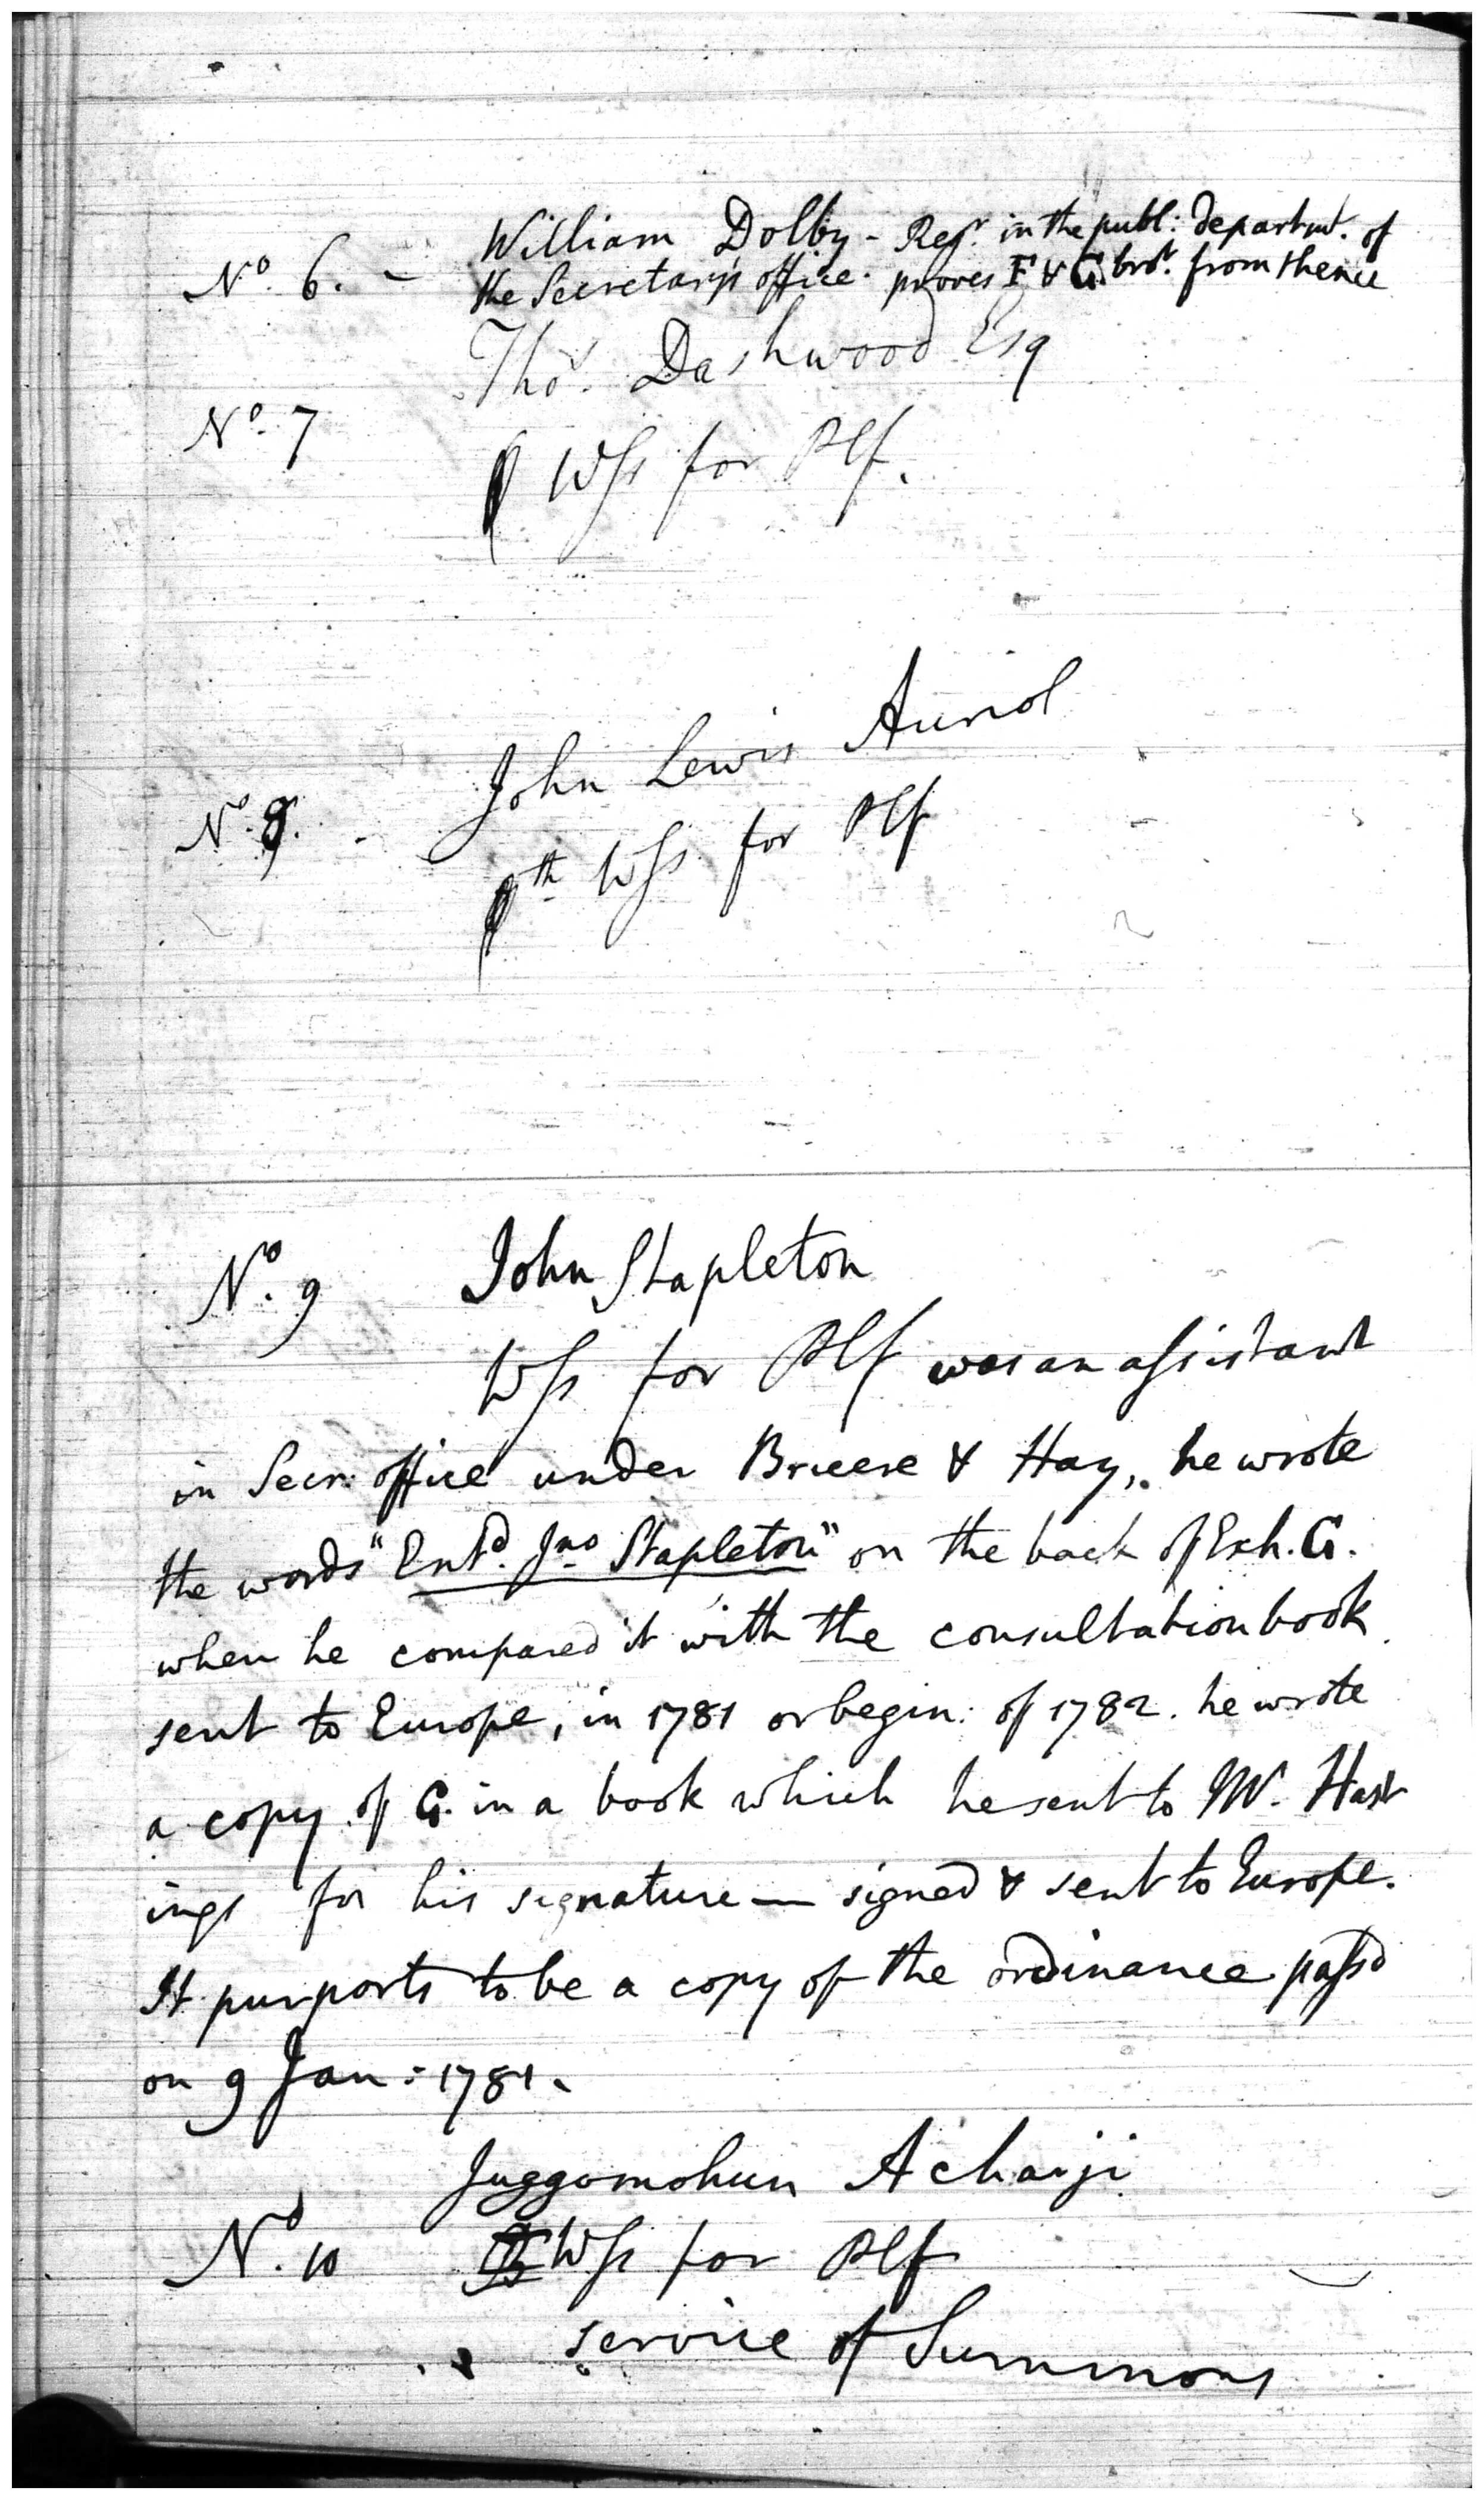 William Dolby - Regr. in the publ: departmt. of
No. 6. - the Secretary's office. proves F & G. brot. from thence
Thos. Dashwood Esq
No. 7
Wss for Plf.
John Lewis Auriol
No. 8. -
th Wss for Plf
No. 9 John Stapleton
Wss for Plf was an assistant
in Secr: office under Breere & Hay, he wrote
the words "Entd. Jno Stapleton" on the back of Exh. G.
when he compared it with the consultation book
sent to Europe, in 1781 or begin: of 1782. he wrote
a copy of G. in a book which he sent to Mr. Hast
ings for his signature — signed & sent to Europe.
It purports to be a copy of the ordinance passd
on 9 Jan: 1781.
Juggomohun Acharji
No. 10 Wss for Plf
service of Summons